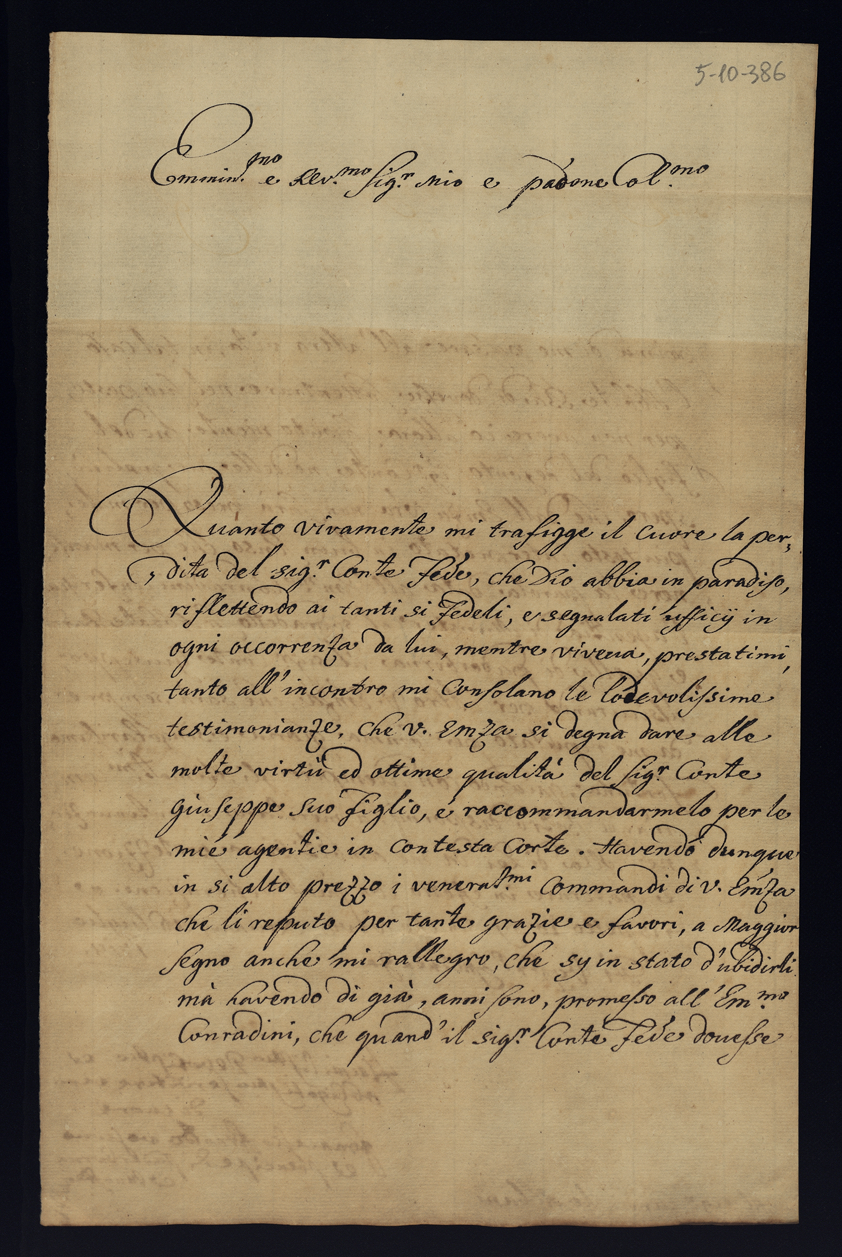 5-10-386
Emmin.mo e Rev.mo Sig.r Mio e padone Col.mo
Quanto vivamente mi trafigge il cuore la per,
, dita del sig.r Conte Fede, che Dio abbia in paradiso,
riflettendo ai tanti si Fedeli, e segnalati ufficij in
ogni occorrenza da lui, mentre viveua, prestatimi,
tanto all'incontro mi Consolano le lodevolissime
testimonianze, che v. Emza si degna dare alle
molte virtù ed ottime qualità del sig.r Conte
Giuseppe suo Figlio, e raccommandarmelo per le
mie agentie in Contesta Corte. Havendo dunque
in si alto prezzo i venerat.mi Commandi di v. Emza
che li reputo per tante grazie e favori, a Maggior
segno anche mi rallegro, che sy in stato d'ubidirli.
mà havendo di già, anni sono, promesso all'Em.mo
Conradini, che quand'il sig.r Conte Fede douesse